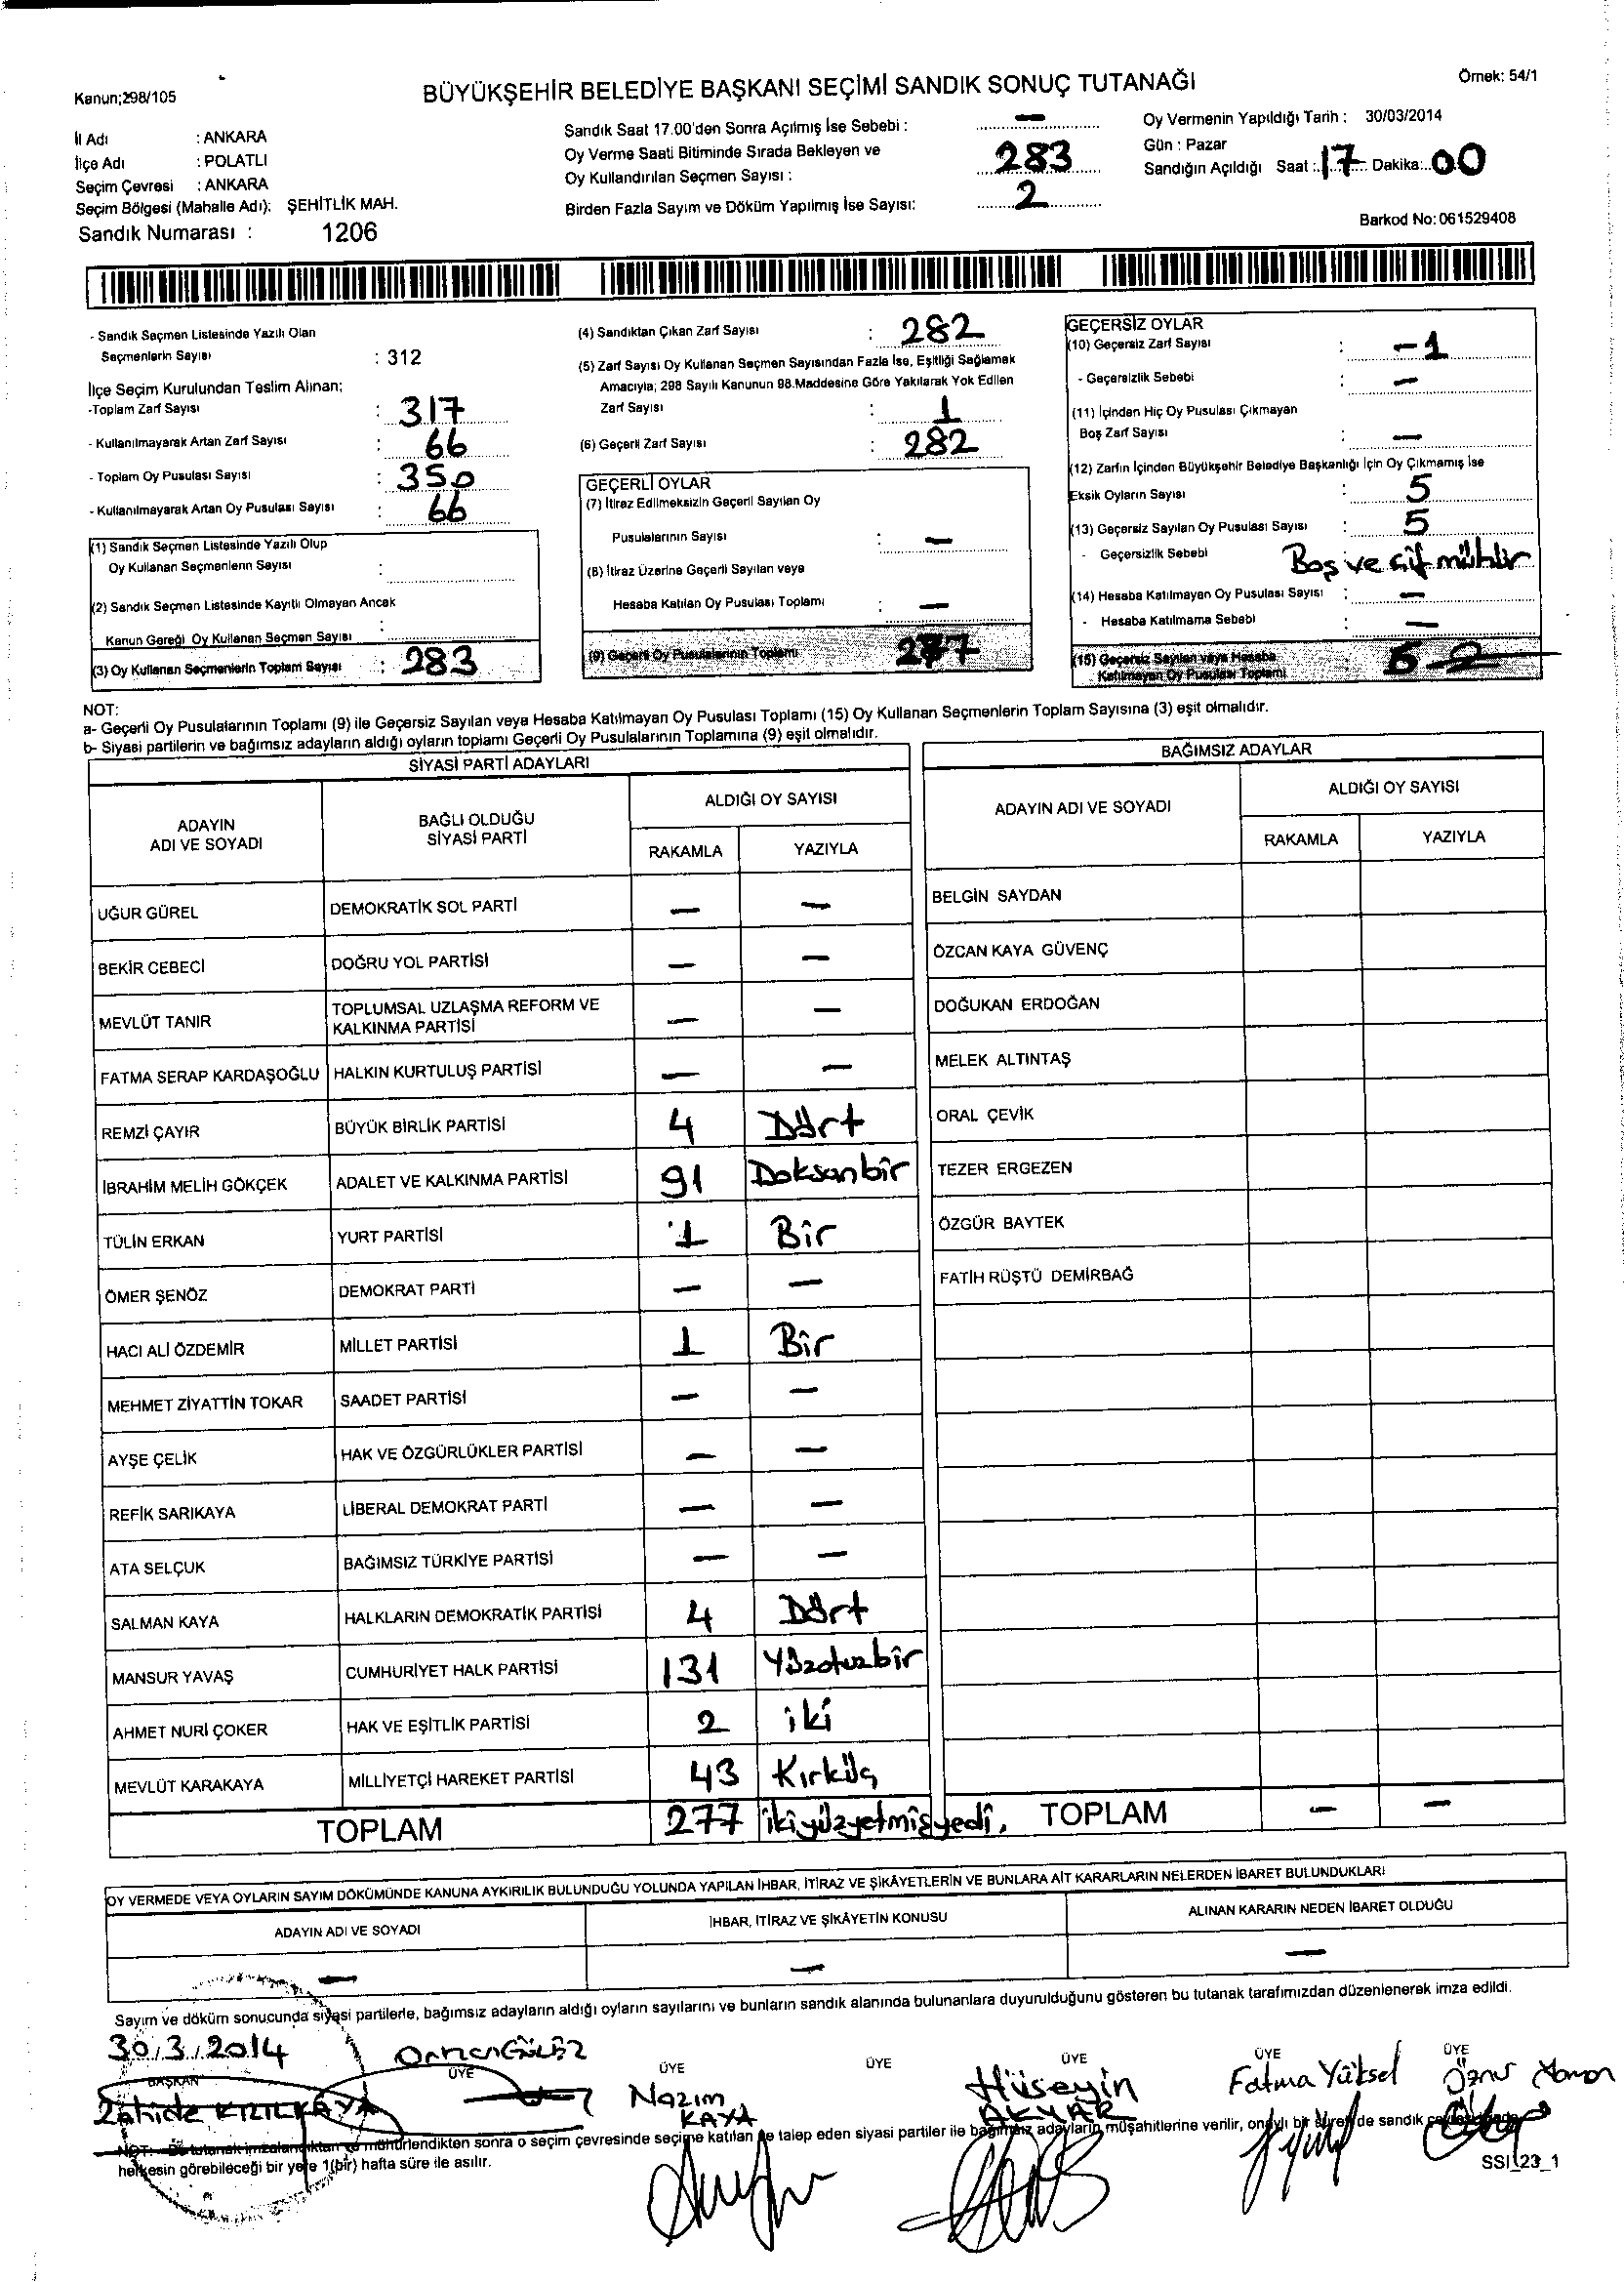 Kanun;298/105
BÜYÜKŞEHİR BELEDİYE BAŞKANI SEÇİMİ SANDIK SONUÇ TUTANAĞI
Örnek: 54/1
İl Adı : ANKARA
İlçe Adı : POLATLI
Seçim Çevresi : ANKARA
Seçim Bölgesi (Mahalle Adı): ŞEHİTLİK MAH.
Sandık Numarası : 1206
Sandık Saat 17.00'den Sonra Açılmış İse Sebebi : —
Oy Verme Saati Bitiminde Sırada Bekleyen ve
Oy Kullandırılan Seçmen Sayısı : 283
Birden Fazla Sayım ve Döküm Yapılmış İse Sayısı: 2
Oy Vermenin Yapıldığı Tarih : 30/03/2014
Gün : Pazar
Sandığın Açıldığı Saat : 17 Dakika: 00
Barkod No: 061529408
- Sandık Seçmen Listesinde Yazılı Olan
Seçmenlerin Sayısı : 312
İlçe Seçim Kurulundan Teslim Alınan;
-Toplam Zarf Sayısı : 317
- Kullanılmayarak Artan Zarf Sayısı : 66
- Toplam Oy Pusulası Sayısı : 350
- Kullanılmayarak Artan Oy Pusulası Sayısı : 66
(1) Sandık Seçmen Listesinde Yazılı Olup
Oy Kullanan Seçmenlerin Sayısı :
(2) Sandık Seçmen Listesinde Kayıtlı Olmayan Ancak
Kanun Gereği Oy Kullanan Seçmen Sayısı :
(3) Oy Kullanan Seçmenlerin Toplam Sayısı : 283
(4) Sandıktan Çıkan Zarf Sayısı : 282
(5) Zarf Sayısı Oy Kullanan Seçmen Sayısından Fazla İse, Eşitliği Sağlamak
Amacıyla; 298 Sayılı Kanunun 98.Maddesine Göre Yakılarak Yok Edilen
Zarf Sayısı : 1
(6) Geçerli Zarf Sayısı : 282
GEÇERLİ OYLAR
(7) İtiraz Edilmeksizin Geçerli Sayılan Oy
Pusulalarının Sayısı : —
(8) İtiraz Üzerine Geçerli Sayılan veya
Hesaba Katılan Oy Pusulası Toplamı : —
(9) Geçerli Oy Pusulalarının Toplamı 277
GEÇERSİZ OYLAR
(10) Geçersiz Zarf Sayısı : -1
- Geçersizlik Sebebi : —
(11) İçinden Hiç Oy Pusulası Çıkmayan
Boş Zarf Sayısı : —
(12) Zarfın İçinden Büyükşehir Belediye Başkanlığı İçin Oy Çıkmamış İse
Eksik Oyların Sayısı : 5
(13) Geçersiz Sayılan Oy Pusulası Sayısı : 5
- Geçersizlik Sebebi Boş ve çift mühür
(14) Hesaba Katılmayan Oy Pusulası Sayısı : —
- Hesaba Katılmama Sebebi : —
(15) Geçersiz Sayılan veya Hesaba
Katılmayan Oy Pusulası Toplamı
NOT:
a- Geçerli Oy Pusulalarının Toplamı (9) ile Geçersiz Sayılan veya Hesaba Katılmayan Oy Pusulası Toplamı (15) Oy Kullanan Seçmenlerin Toplam Sayısına (3) eşit olmalıdır.
b- Siyasi partilerin ve bağımsız adayların aldığı oyların toplamı Geçerli Oy Pusulalarının Toplamına (9) eşit olmalıdır.
SİYASİ PARTİ ADAYLARI
ADAYIN ADI VE SOYADI
BAĞLI OLDUĞU SİYASİ PARTİ
ALDIĞI OY SAYISI
RAKAMLA YAZIYLA
UĞUR GÜREL DEMOKRATİK SOL PARTİ — —
BEKİR CEBECİ DOĞRU YOL PARTİSİ — —
MEVLÜT TANIR TOPLUMSAL UZLAŞMA REFORM VE KALKINMA PARTİSİ — —
FATMA SERAP KARDAŞOĞLU HALKIN KURTULUŞ PARTİSİ — —
REMZİ ÇAYIR BÜYÜK BİRLİK PARTİSİ 4 Dört
İBRAHİM MELİH GÖKÇEK ADALET VE KALKINMA PARTİSİ 91 Doksanbir
TÜLİN ERKAN YURT PARTİSİ 1 Bir
ÖMER ŞENÖZ DEMOKRAT PARTİ — —
HACI ALİ ÖZDEMİR MİLLET PARTİSİ 1 Bir
MEHMET ZİYATTİN TOKAR SAADET PARTİSİ — —
AYŞE ÇELİK HAK VE ÖZGÜRLÜKLER PARTİSİ — —
REFİK SARIKAYA LİBERAL DEMOKRAT PARTİ — —
ATA SELÇUK BAĞIMSIZ TÜRKİYE PARTİSİ — —
SALMAN KAYA HALKLARIN DEMOKRATİK PARTİSİ 4 Dört
MANSUR YAVAŞ CUMHURİYET HALK PARTİSİ 131 Yüzotuzbir
AHMET NURİ ÇOKER HAK VE EŞİTLİK PARTİSİ 2 iki
MEVLÜT KARAKAYA MİLLİYETÇİ HAREKET PARTİSİ 43 Kırküç
TOPLAM 277 ikiyüzyetmişyedi.
BAĞIMSIZ ADAYLAR
ADAYIN ADI VE SOYADI
ALDIĞI OY SAYISI
RAKAMLA YAZIYLA
BELGİN SAYDAN
ÖZCAN KAYA GÜVENÇ
DOĞUKAN ERDOĞAN
MELEK ALTINTAŞ
ORAL ÇEVİK
TEZER ERGEZEN
ÖZGÜR BAYTEK
FATİH RÜŞTÜ DEMİRBAĞ
TOPLAM — —
OY VERMEDE VEYA OYLARIN SAYIM DÖKÜMÜNDE KANUNA AYKIRILIK BULUNDUĞU YOLUNDA YAPILAN İHBAR, İTİRAZ VE ŞİKÂYETLERİN VE BUNLARA AİT KARARLARIN NELERDEN İBARET BULUNDUKLARI
ADAYIN ADI VE SOYADI İHBAR, İTİRAZ VE ŞİKÂYETİN KONUSU ALINAN KARARIN NEDEN İBARET OLDUĞU
— — —
Sayım ve döküm sonucunda siyasi partilerle, bağımsız adayların aldığı oyların sayılarını ve bunların sandık alanında bulunanlara duyurulduğunu gösteren bu tutanak tarafımızdan düzenlenerek imza edildi.
30/3/2014
BAŞKAN ÜYE ÜYE ÜYE ÜYE ÜYE ÜYE
Zahide KIZILKAYA
Nazım KAYA
Hüseyin AKYAR
Fatma Yüksel
NOT: Bu tutanak imzalandıktan ve mühürlendikten sonra o seçim çevresinde seçime katılan ve talep eden siyasi partiler ile bağımsız adayların müşahitlerine verilir, onaylı bir sureti de sandık
herkesin görebileceği bir yere 1(bir) hafta süre ile asılır.
SSI_23_1